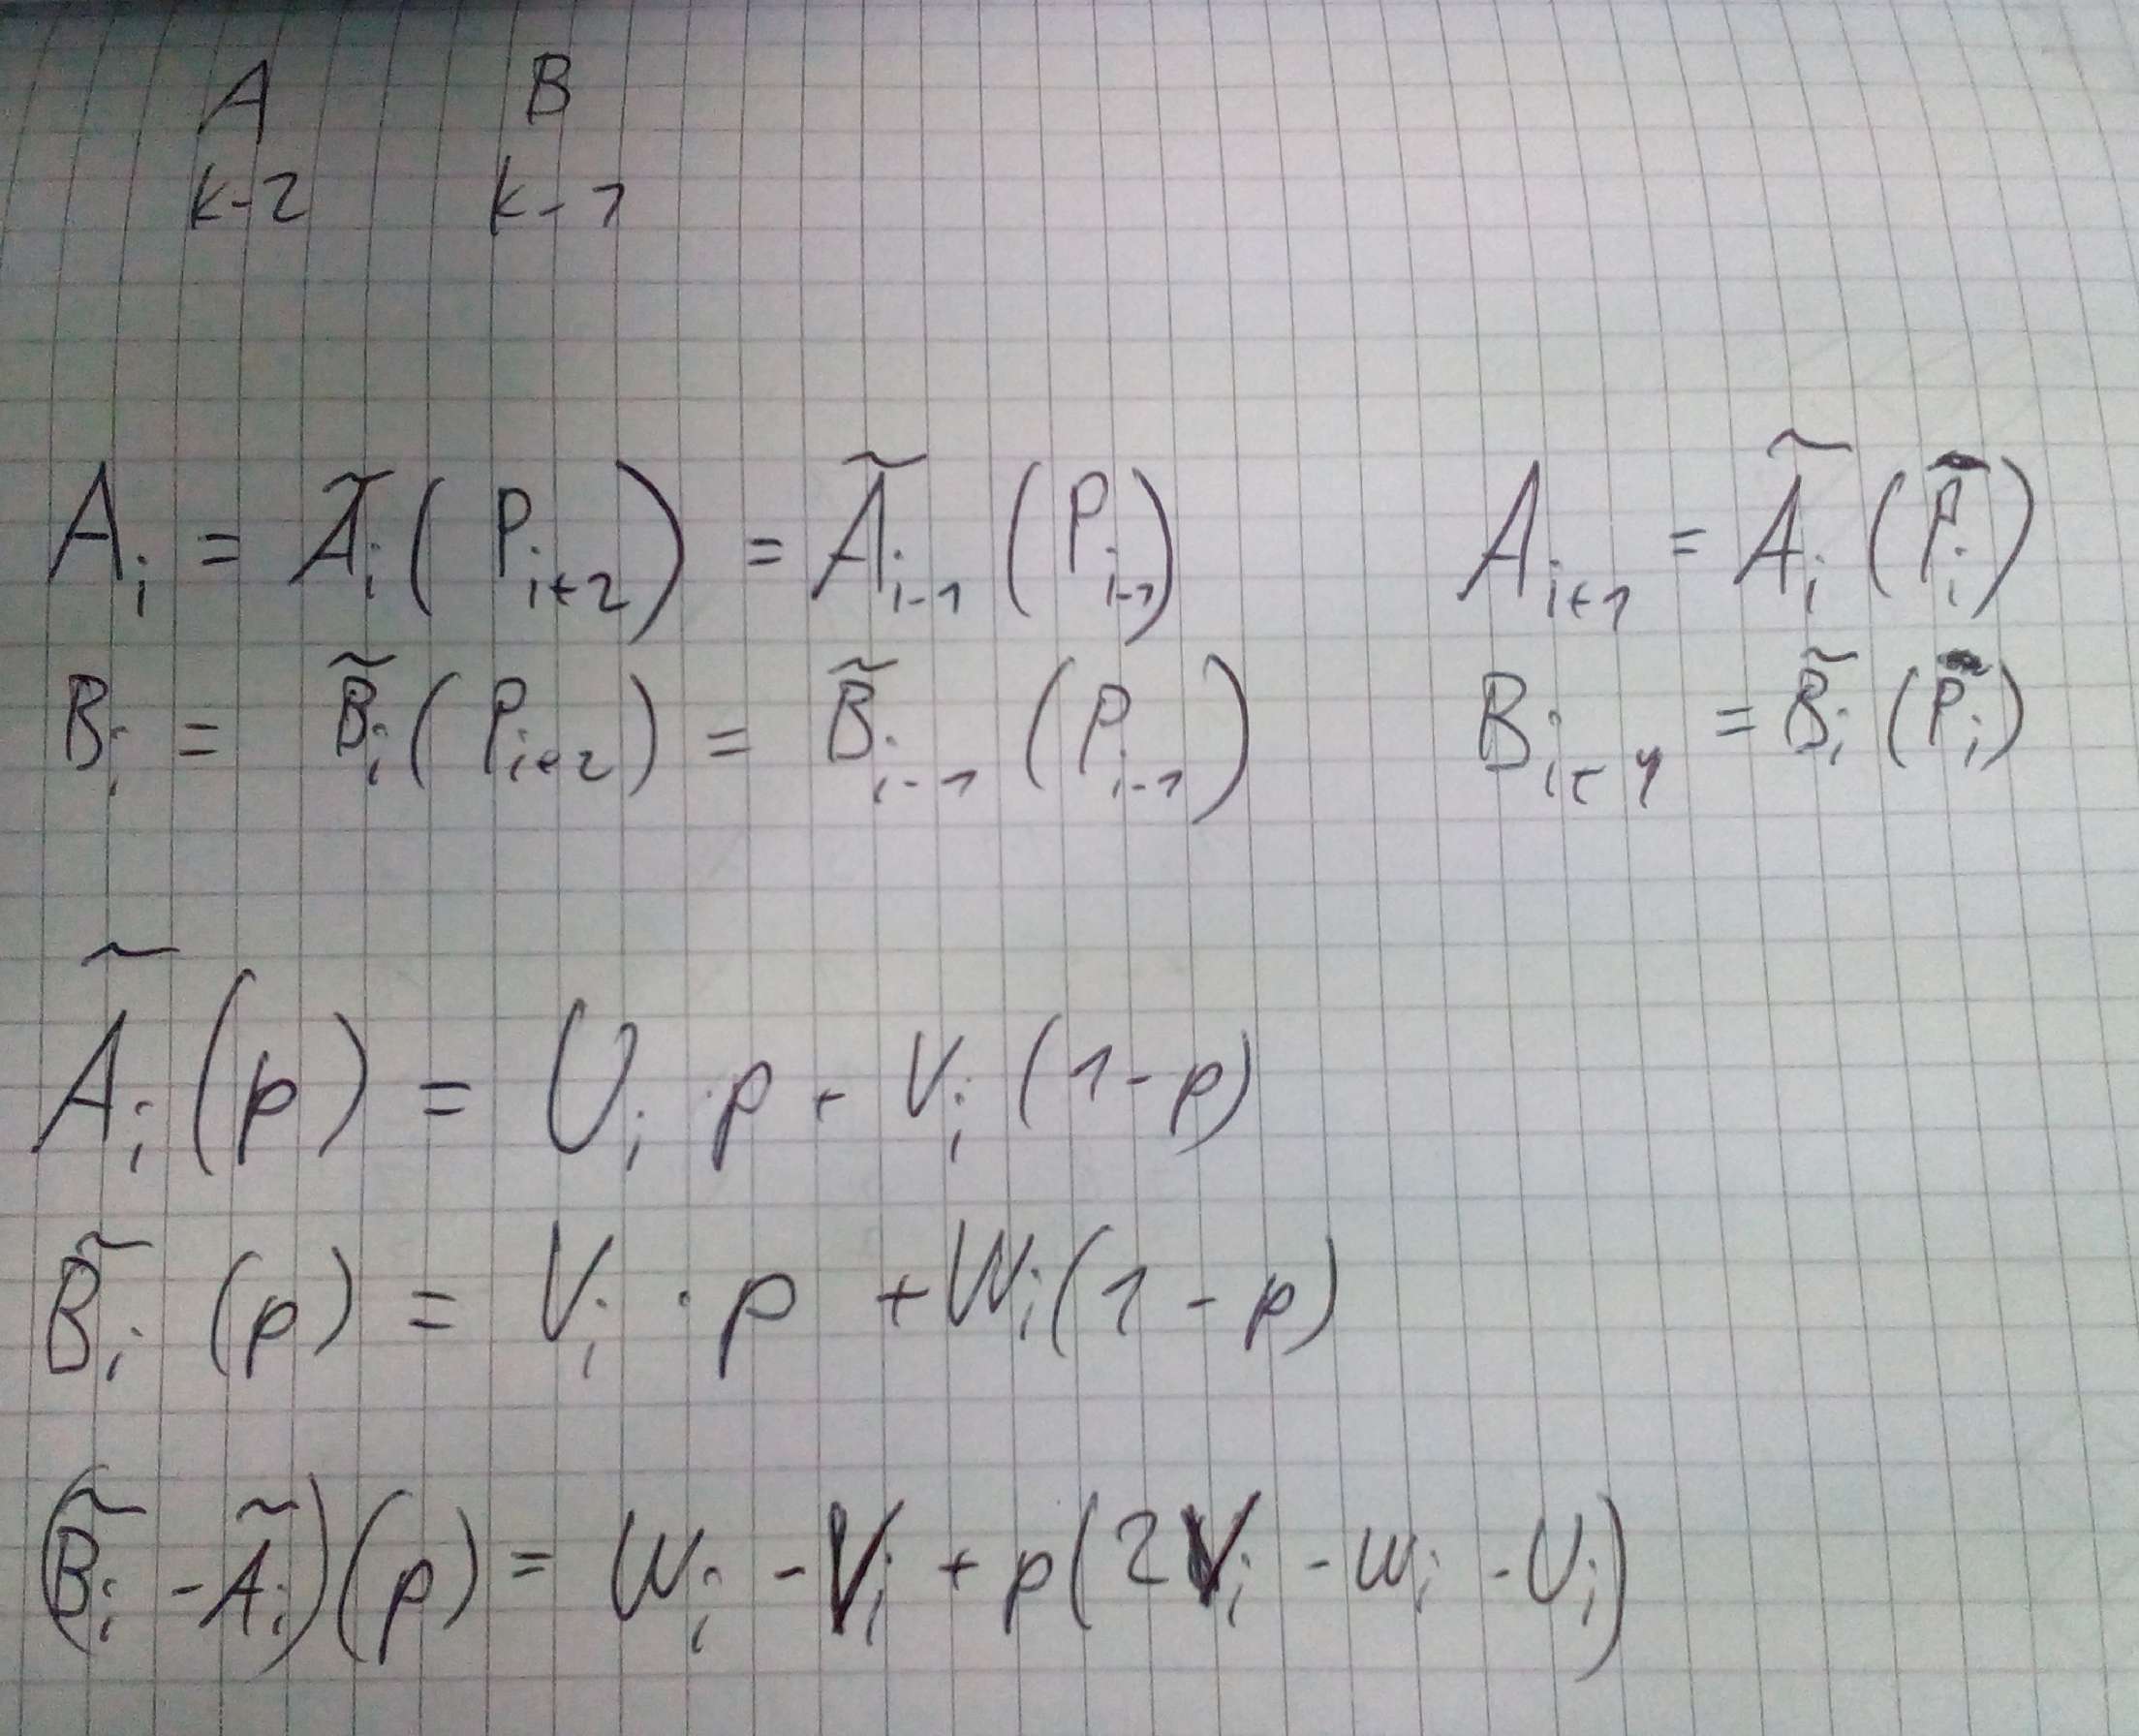 A B
k-2 k-1
A_i = Ã_i(P_{i+2}) = Ã_{i-1}(P_{i-1}) A_{i+1} = Ã_i(P_i)
B_i = B̃_i(P_{i+2}) = B̃_{i-1}(P_{i-1}) B_{i+1} = B̃_i(P_i)
Ã_i(p) = U_i · p + V_i(1-p)
B̃_i(p) = V_i · p + W_i(1-p)
(B̃_i - Ã_i)(p) = W_i - V_i + p(2V_i - W_i - U_i)